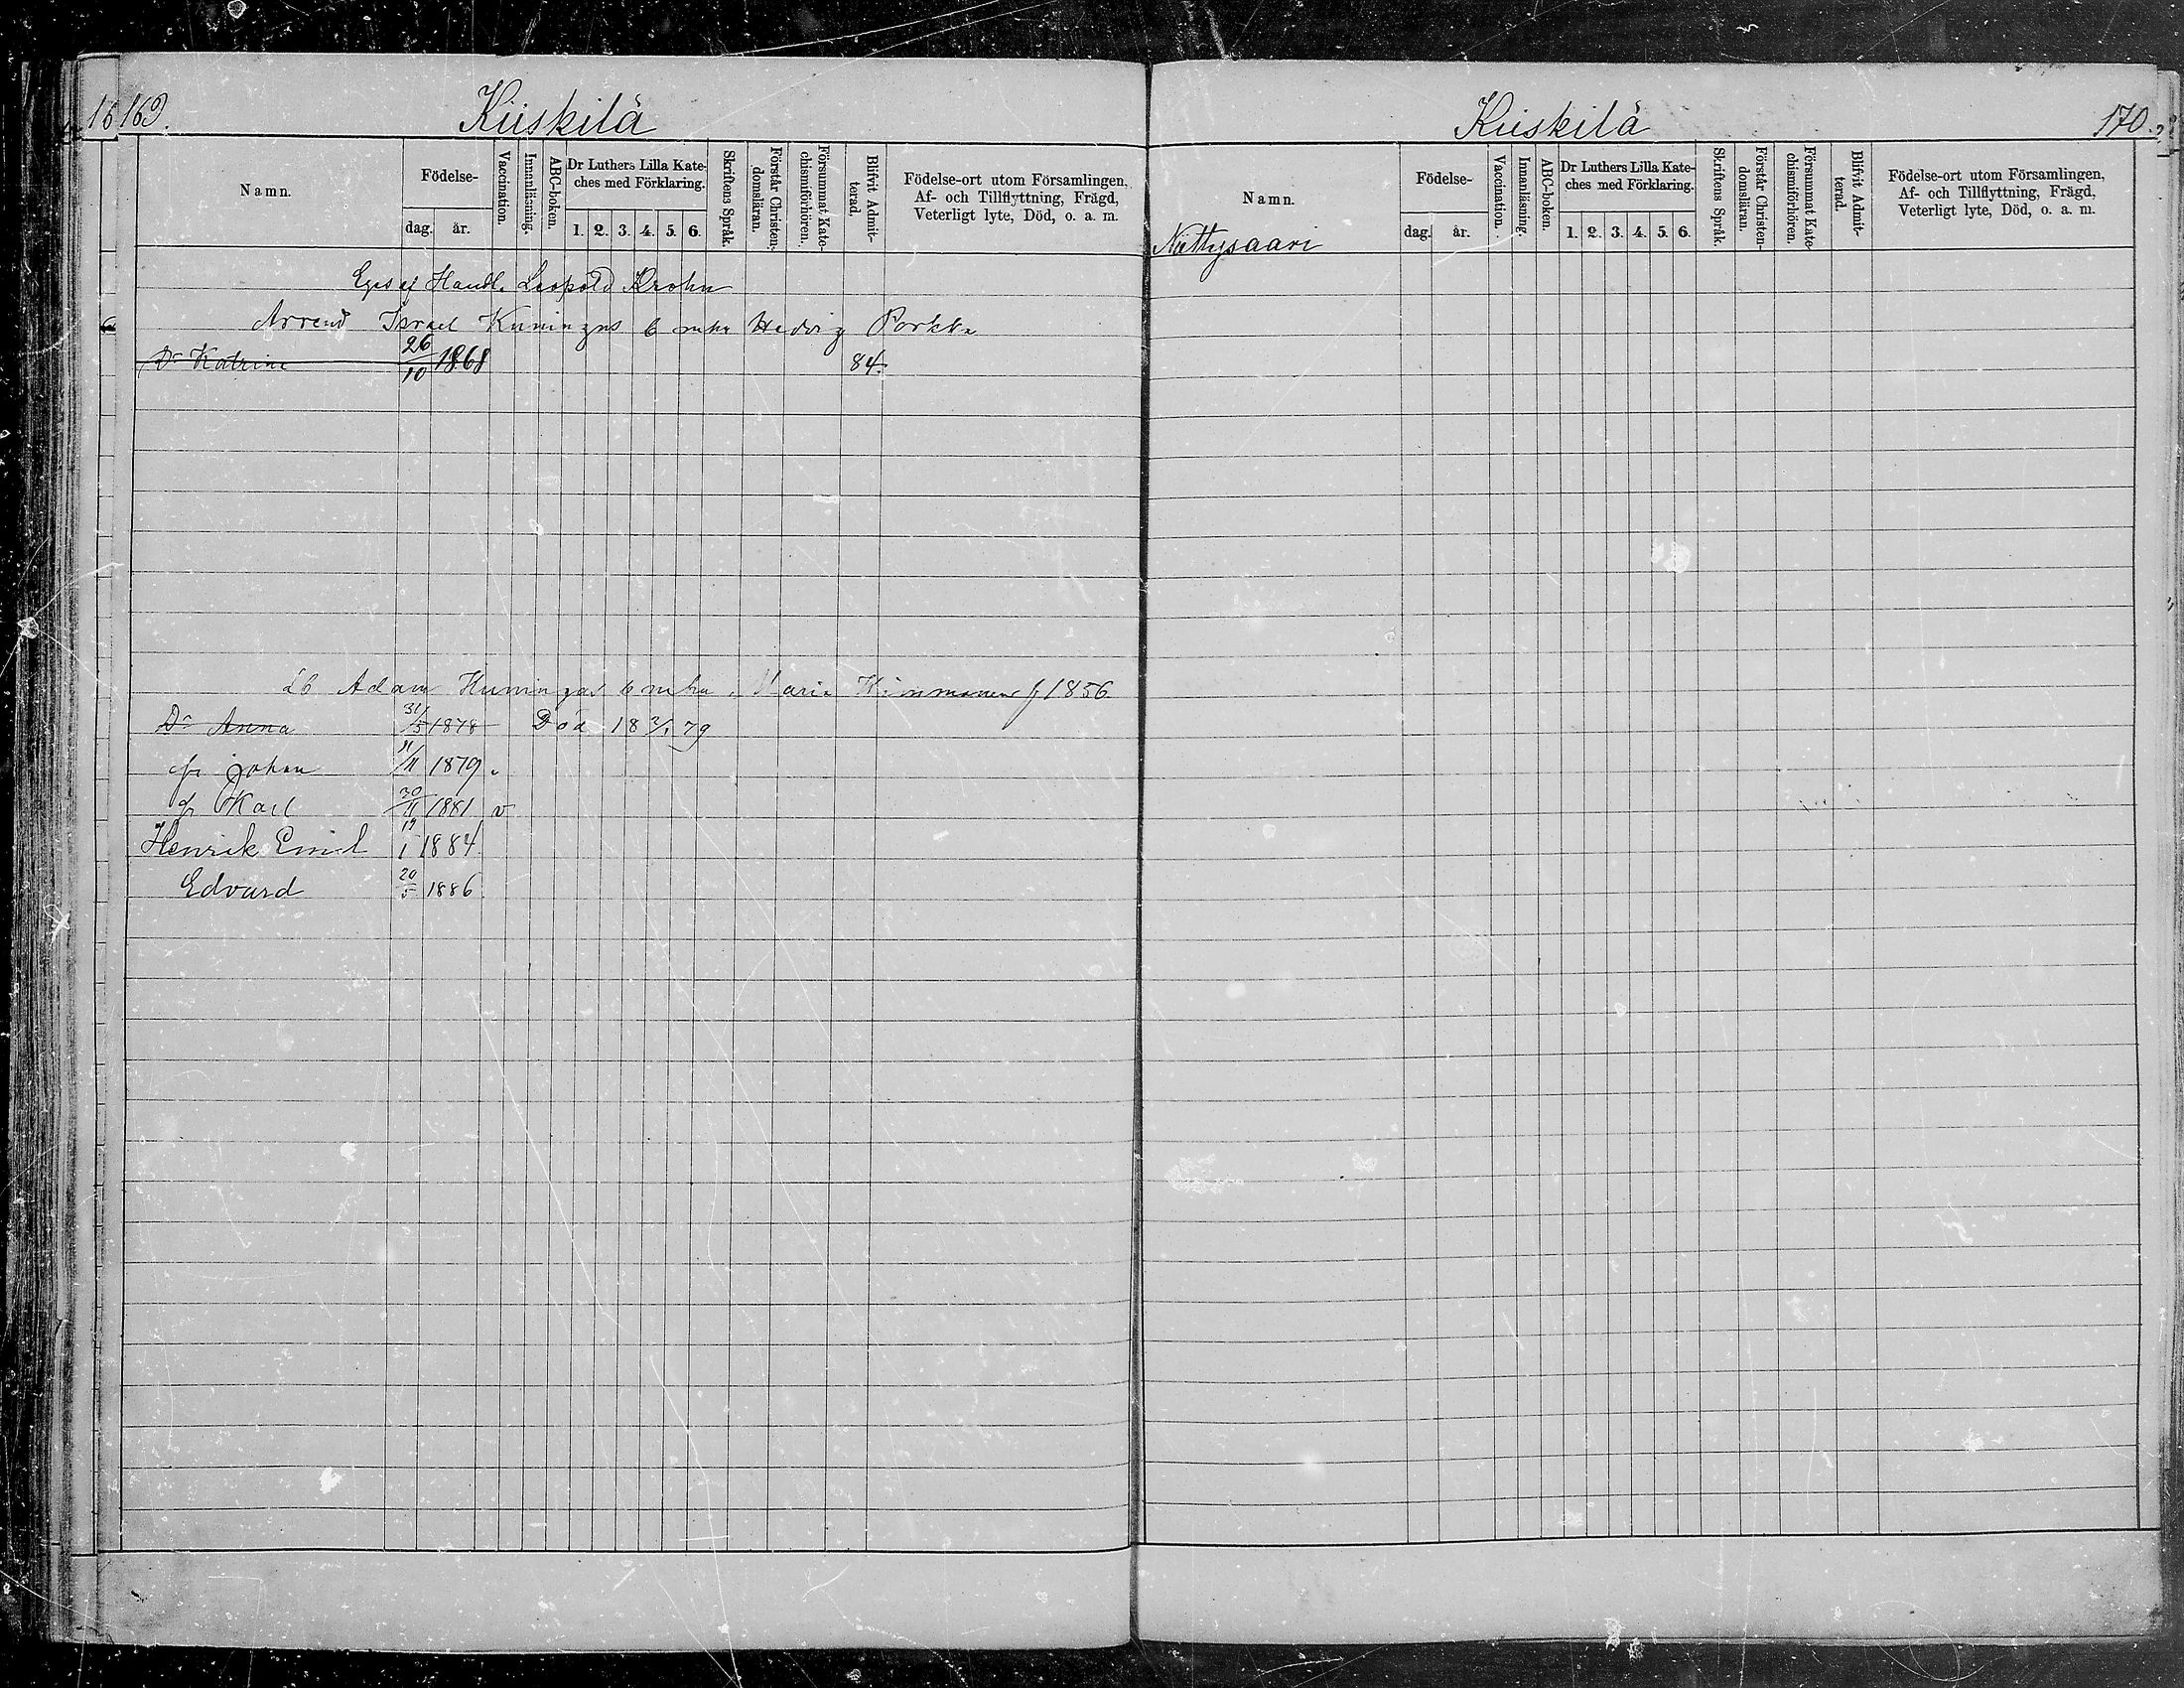 169.
Kiiskilä
Namn.
Födelse-
dag. år.
Vaccination.
Innanläsning.
ABC-boken.
Dr Luthers Lilla Kate-
ches med Förklaring.
1. 2. 3. 4. 5. 6.
Skriftens Språk.
Förstår Christen-
domsläran.
Försummat Kate-
chismiförhören.
Blifvit Admit-
terad.
Födelse-ort utom Församlingen,
Af- och Tillflyttning, Frägd,
Veterligt lyte, Död, o. a. m.
Handl. Leopold Krohn
Arrend Israel Kuningas o mka Hedvig Porkka
Dr Katrina 26/10 1868 84.
Lb Adam Kuningas o mka Maria f 1856
Dr Anna 31/5 1878 Död 18 79
Johan 11/11 1879
Karl 30/11 1881 v
Henrik Emil 19/1 1884
Edvard 20/5 1886
Kiiskilä
170.
Namn.
Födelse-
dag. år.
Vaccination.
Innanläsning.
ABC-boken.
Dr Luthers Lilla Kate-
ches med Förklaring.
1. 2. 3. 4. 5. 6.
Skriftens Språk.
Förstår Christen-
domsläran.
Försummat Kate-
chismiförhören.
Blifvit Admit-
terad.
Födelse-ort utom Församlingen,
Af- och Tillflyttning, Frägd,
Veterligt lyte, Död, o. a. m.